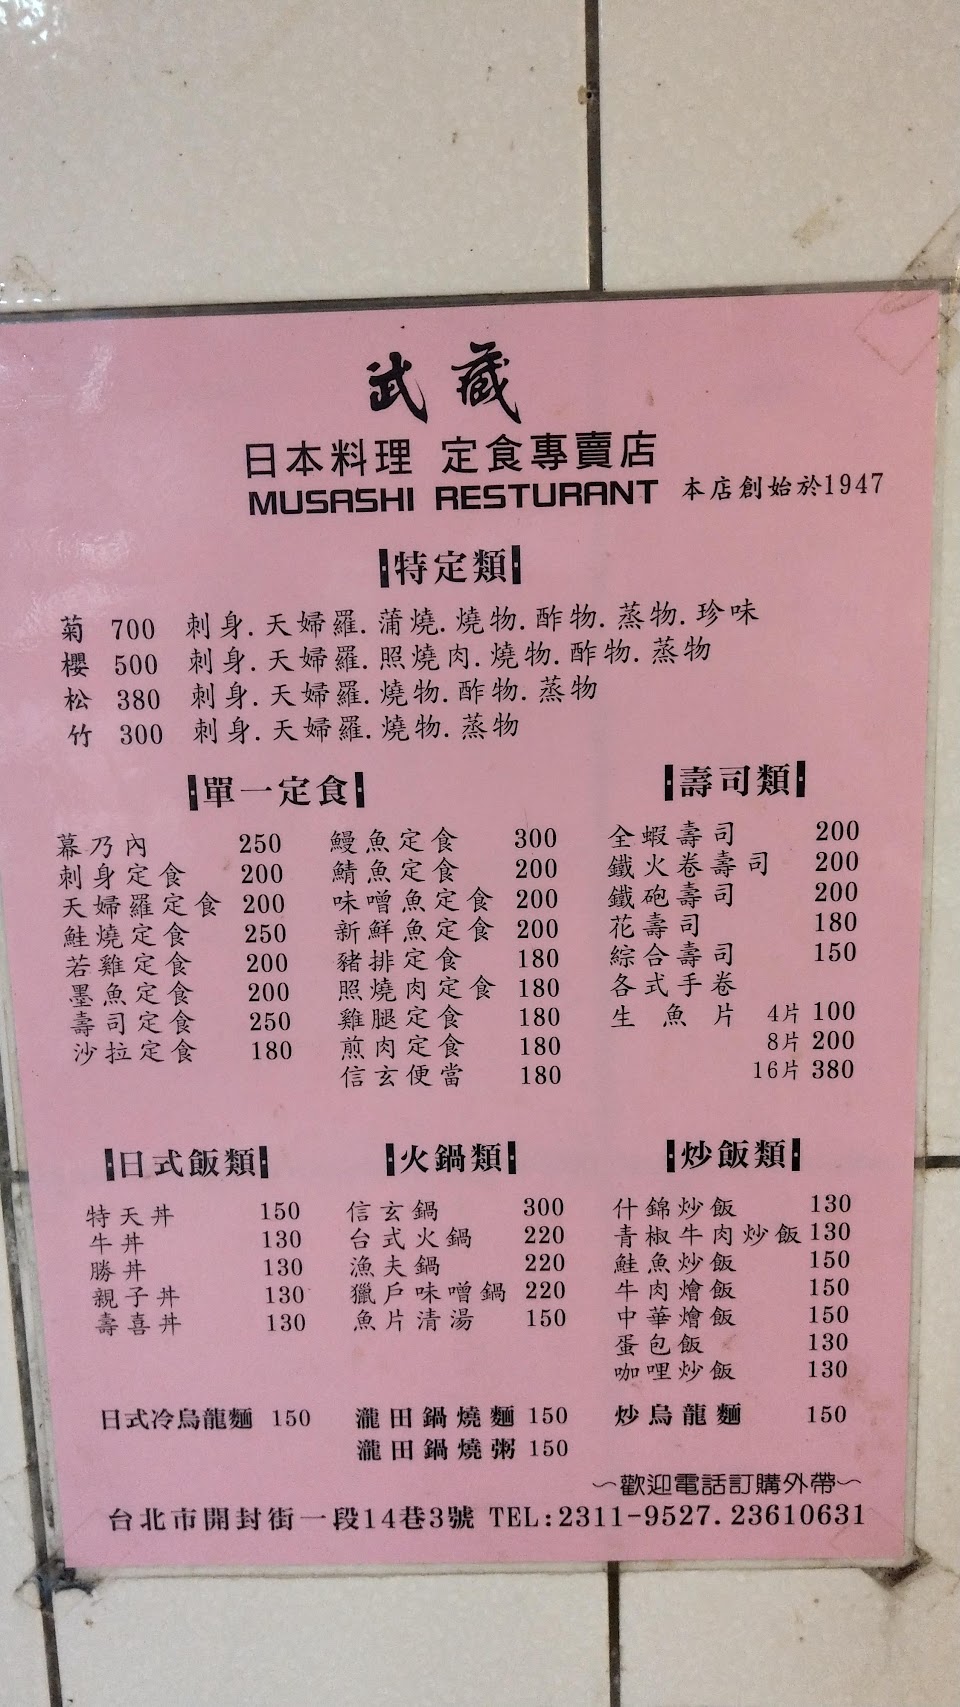 武藏
日本料理 定食專賣店
MUSASHI RESTURANT 本店創始於1947
特定類
菊 700 刺身.天婦羅.蒲燒.燒物.酢物.蒸物.珍味
櫻 500 刺身.天婦羅.照燒肉.燒物.酢物.蒸物
松 380 刺身.天婦羅.燒物.酢物.蒸物
竹 300 刺身.天婦羅.燒物.蒸物
單一定食
幕乃內 250
刺身定食 200
天婦羅定食 200
鮭燒定食 250
若雞定食 200
墨魚定食 200
壽司定食 250
沙拉定食 180
鰻魚定食 300
鯖魚定食 200
味噌魚定食 200
新鮮魚定食 200
豬排定食 180
照燒肉定食 180
雞腿定食 180
煎肉定食 180
信玄便當 180
壽司類
全蝦壽司 200
鐵火卷壽司 200
鐵砲壽司 200
花壽司 180
綜合壽司 150
各式手卷
生魚片 4片 100
8片 200
16片 380
日式飯類
特天丼 150
牛丼 130
勝丼 130
親子丼 130
壽喜丼 130
日式冷烏龍麵 150
火鍋類
信玄鍋 300
台式火鍋 220
漁夫鍋 220
獵戶味噌鍋 220
魚片清湯 150
瀧田鍋燒麵 150
瀧田鍋燒粥 150
炒飯類
什錦炒飯 130
青椒牛肉炒飯 130
鮭魚炒飯 150
牛肉燴飯 150
中華燴飯 150
蛋包飯 130
咖哩炒飯 130
炒烏龍麵 150
～歡迎電話訂購外帶～
台北市開封街一段14巷3號 TEL:2311-9527.23610631